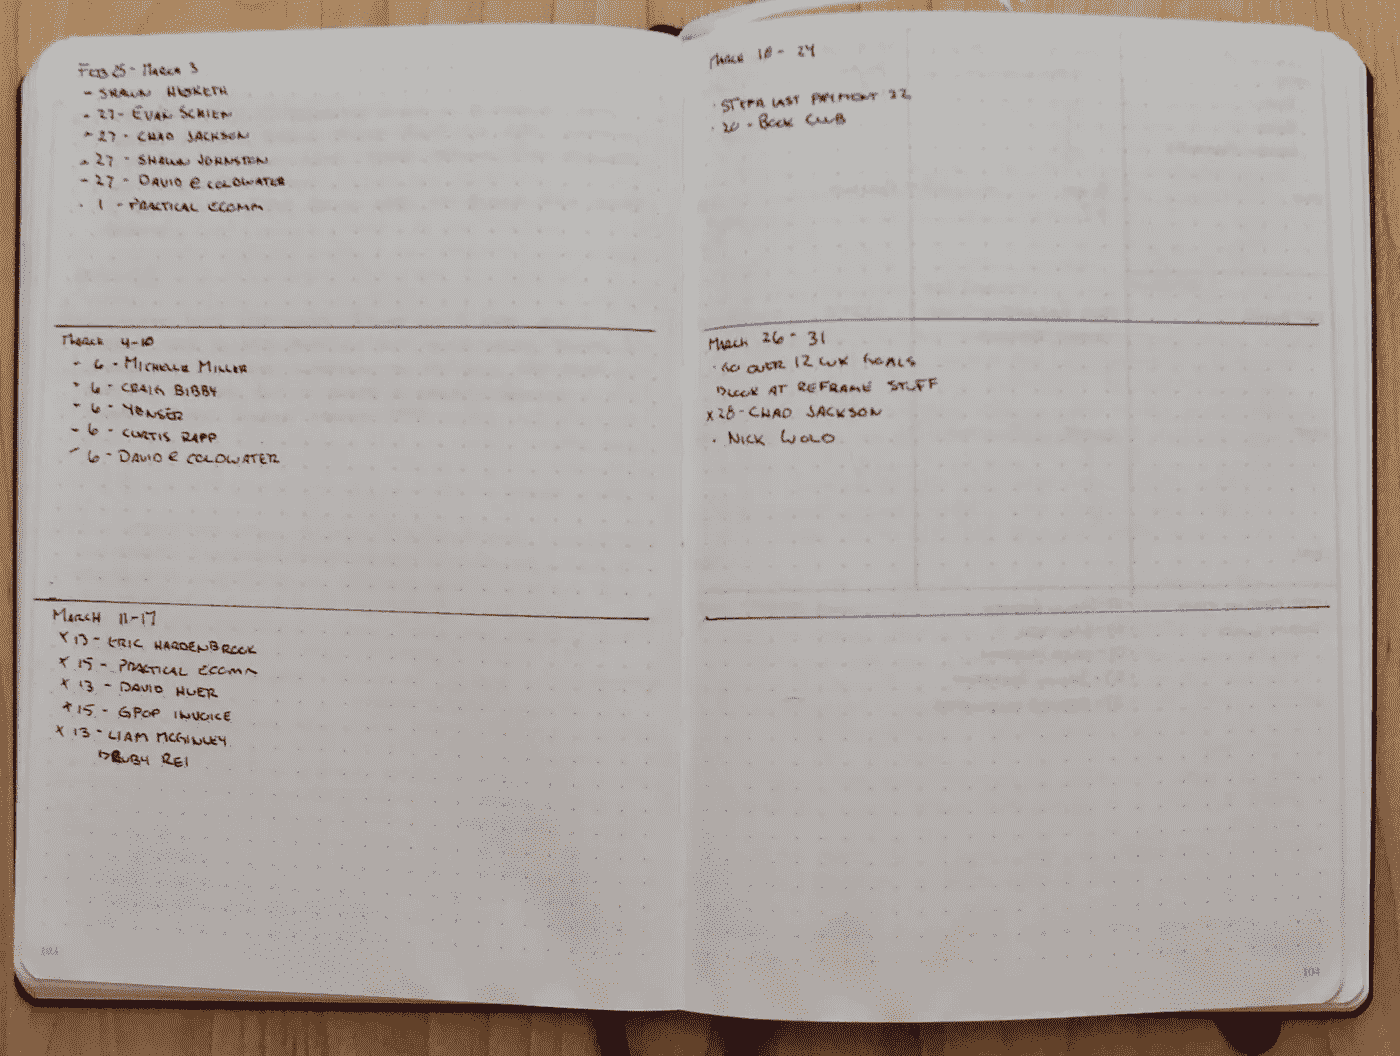 FEB 25 - MARCH 3
- SHAWN HESKETH
- 27 - EVAN SCHIEN
- 27 - CHAD JACKSON
- 27 - SHAWN JOHNSTON
- 27 - DAVID @ COLDWATER
· 1 - PRACTICAL ECOMM
MARCH 4-10
- 6 - MICHELLE MILLER
- 6 - CRAIG BIBBY
- 6 - YENSER
- 6 - CURTIS RAPP
- 6 - DAVID @ COLDWATER
MARCH 11-17
x 13 - ERIC HARDENBROOK
x 15 - PRACTICAL ECOMM
x 13 - DAVID HUER
x 15 - GPOP INVOICE
x 13 - LIAM MCGINLEY
RUBY REI
103
MARCH 18 - 24
· LAST PAYMENT 22
· 20 - BOOK CLUB
MARCH 26 - 31
· GO OVER 12 WK GOALS
LOOK AT REFRAME STUFF
x 28 - CHAD JACKSON
· NICK WOLO
104